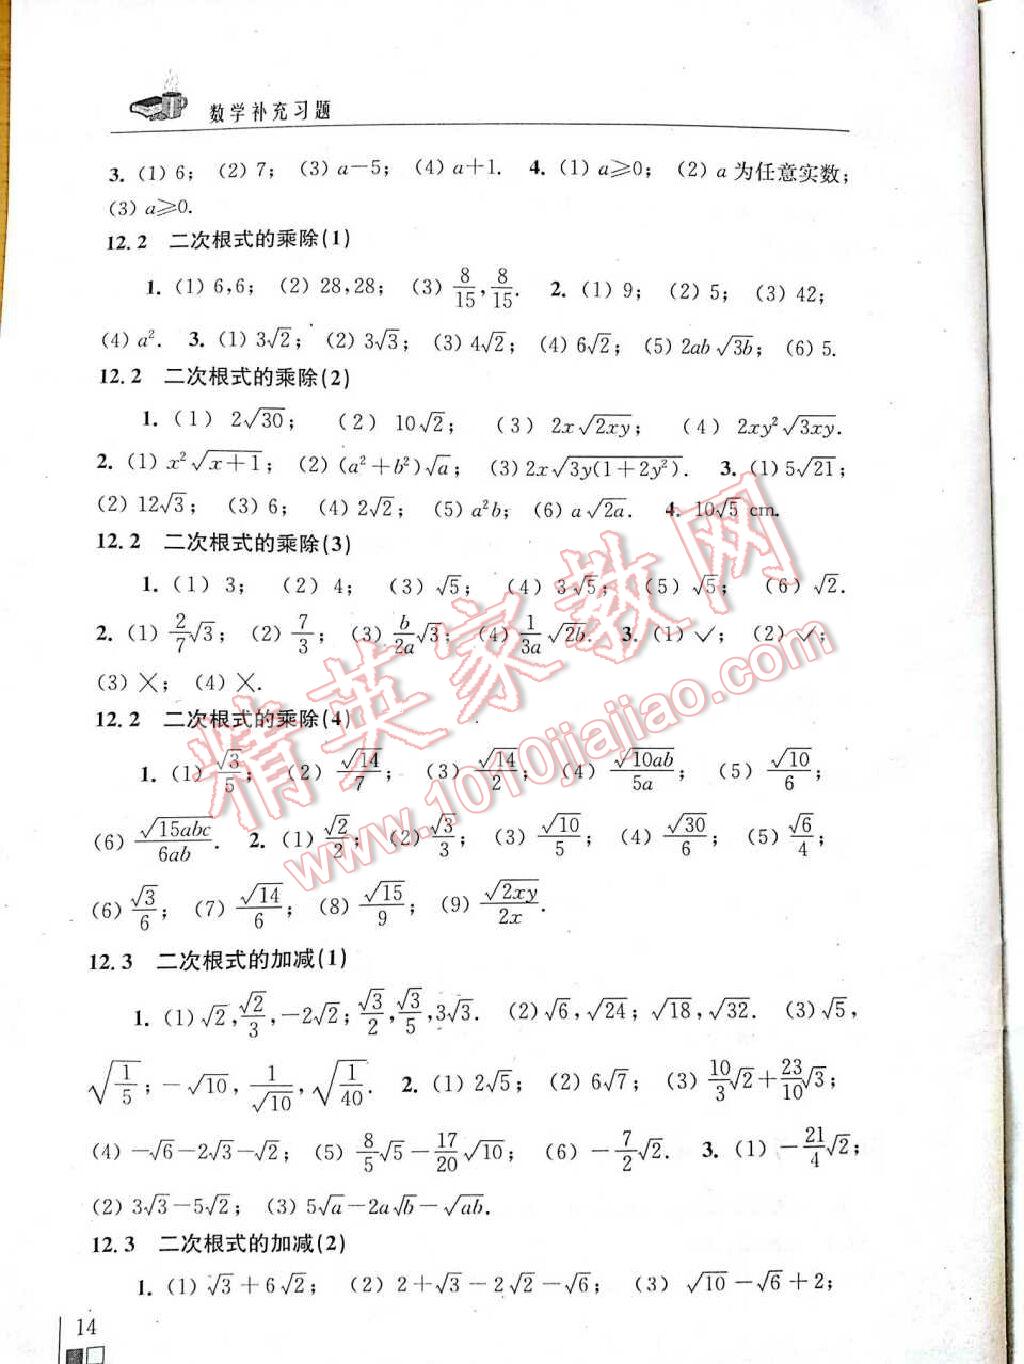 数学补充习题
3. (1) 6; (2) 7; (3) a−5; (4) a+1. 4. (1) a≥0; (2) a 为任意实数;
(3) a≥0.
12.2 二次根式的乘除(1)
1. (1) 6,6; (2) 28,28; (3) 8/15, 8/15. 2. (1) 9; (2) 5; (3) 42;
(4) a². 3. (1) 3√2; (2) 3√3; (3) 4√2; (4) 6√2; (5) 2ab√(3b); (6) 5.
12.2 二次根式的乘除(2)
1. (1) 2√30; (2) 10√2; (3) 2x√(2xy); (4) 2xy²√(3xy).
2. (1) x²√(x+1); (2) (a²+b²)√a; (3) 2x√(3y(1+2y²)). 3. (1) 5√21;
(2) 12√3; (3) 6; (4) 2√2; (5) a²b; (6) a√(2a). 4. 10√5 cm.
12.2 二次根式的乘除(3)
1. (1) 3; (2) 4; (3) √5; (4) 3√5; (5) √5; (6) √2.
2. (1) 2/7√3; (2) 7/3; (3) b/2a√3; (4) 1/3a√(2b). 3. (1) ✓; (2) ✓;
(3) ×; (4) ×.
12.2 二次根式的乘除(4)
1. (1) √3/5; (2) √14/7; (3) √14/2; (4) √(10ab)/5a; (5) √10/6;
(6) √(15abc)/6ab. 2. (1) √2/2; (2) √3/3; (3) √10/5; (4) √30/6; (5) √6/4;
(6) √3/6; (7) √14/6; (8) √15/9; (9) √(2xy)/2x.
12.3 二次根式的加减(1)
1. (1) √2, √2/3, −2√2; √3/2, √3/5, 3√3. (2) √6, √24; √18, √32. (3) √5,
√(1/5); −√10, 1/√10, √(1/40). 2. (1) 2√5; (2) 6√7; (3) 10/3√2+23/10√3;
(4) −√6−2√3−√2; (5) 8/5√5−17/20√10; (6) −7/2√2. 3. (1) −21/4√2;
(2) 3√3−5√2; (3) 5√a−2a√b−√(ab).
12.3 二次根式的加减(2)
1. (1) √3+6√2; (2) 2+√3−2√2−√6; (3) √10−√6+2;
14
精英家教网
www.1010jiajiao.com